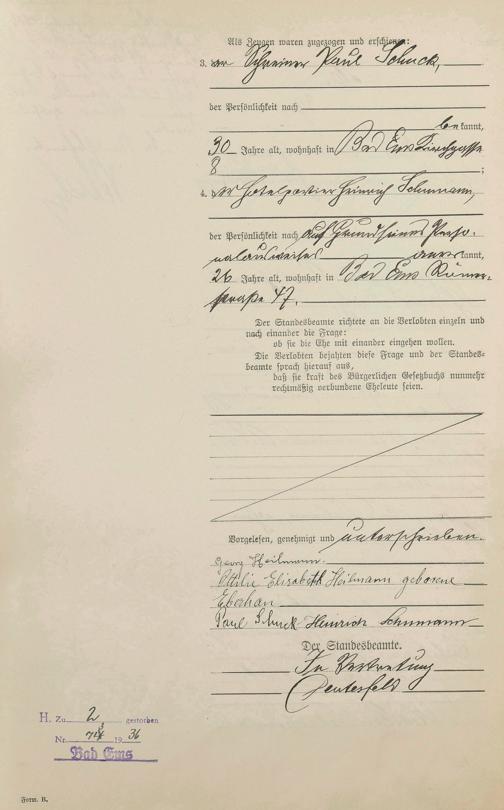 Als Zeugen waren zugezogen und erschienen:
3. der Schreiner Paul Schuck,
der Persönlichkeit nach
bekannt,
30 Jahre alt, wohnhaft in Bad Ems Kirchgasse
8 ;
4. der Hotelportier Heinrich Schumann,
der Persönlichkeit nach auf Grund seines Perso-
nalausweises anerkannt,
26 Jahre alt, wohnhaft in Bad Ems Römer-
straße 47.
Der Standesbeamte richtete an die Verlobten einzeln und
nach einander die Frage:
ob sie die Ehe mit einander eingehen wollen.
Die Verlobten bejahten diese Frage und der Standes-
beamte sprach hierauf aus,
daß sie kraft des Bürgerlichen Gesetzbuchs nunmehr
rechtmäßig verbundene Eheleute seien.
Vorgelesen, genehmigt und unterschrieben.
Georg Heilmann.
Ottilie Elisabeth Heilmann geborene
Paul Schuck Heinrich Schumann
Der Standesbeamte.
In Vertretung
H. Zu 2 gestorben
Nr. 1936
Bad Ems
Form. B.